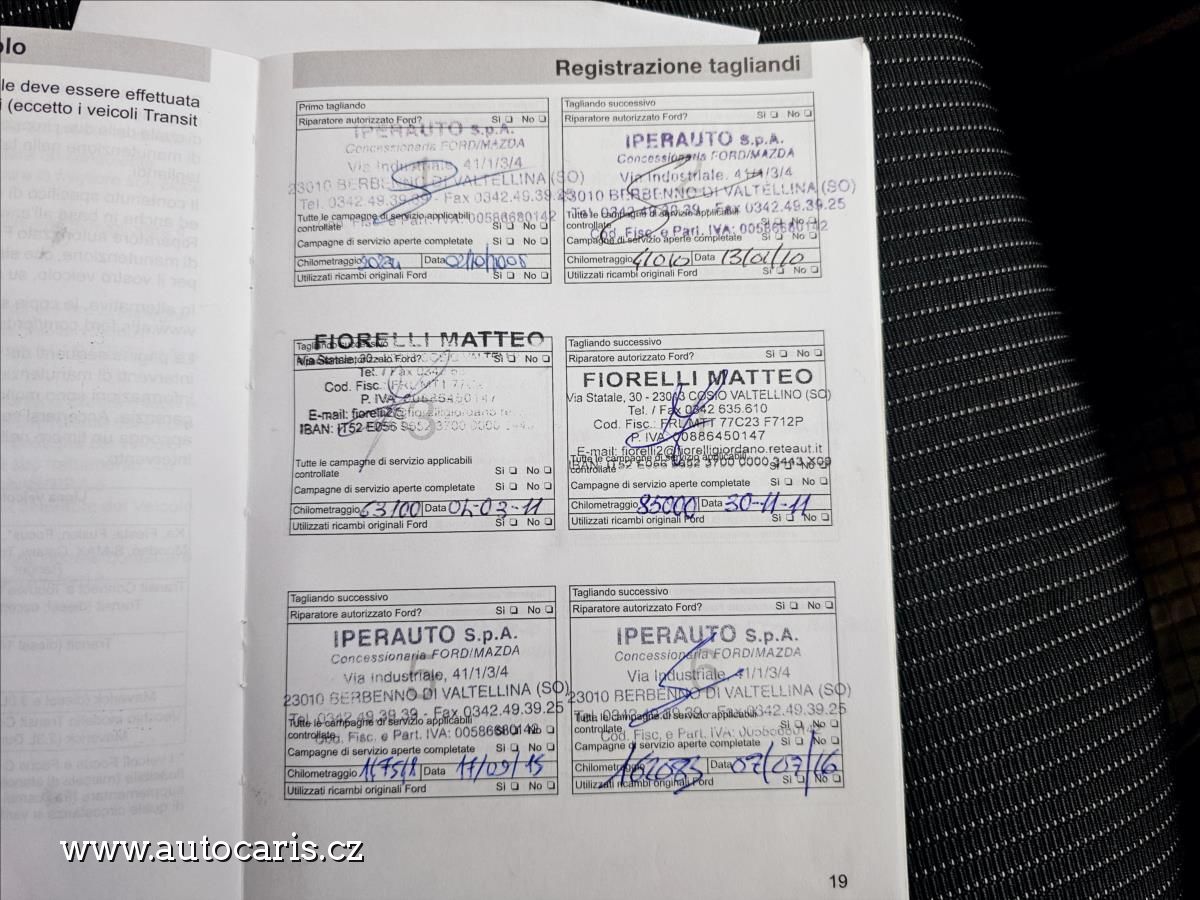 olo
le deve essere effettuata
i (eccetto i veicoli Transit
Registrazione tagliandi
Primo tagliando
Riparatore autorizzato Ford? Sì No
IPERAUTO S.p.A.
Concessionaria FORD/MAZDA
Via Industriale, 41/1/3/4
23010 BERBENNO DI VALTELLINA (SO)
Tel. 0342.49.39.39 - Fax 0342.49.39.25
Tutte le campagne di servizio applicabili
controllate Sì No
Fisc. e Part. IVA: 00586680142
Campagne di servizio aperte completate Sì No
Chilometraggio Data 02/10/2008
Utilizzati ricambi originali Ford Sì No
Tagliando successivo
Riparatore autorizzato Ford? Sì No
IPERAUTO S.p.A.
Concessionaria FORD/MAZDA
Via Industriale, 41/1/3/4
23010 BERBENNO DI VALTELLINA (SO)
Tel. 0342.49.39.39 - Fax 0342.49.39.25
Tutte le campagne di servizio applicabili
controllate Sì No
Cod. Fisc. e Part. IVA: 00586680142
Campagne di servizio aperte completate Sì No
Chilometraggio 41010 Data 13/01/10
Utilizzati ricambi originali Ford Sì No
Tagliando successivo
FIORELLI MATTEO
Riparatore autorizzato Ford? Sì No
Via Statale, 30
Tel. / Fax 0342
Cod. Fisc.:
P. IVA 00886450147
E-mail: fiorelli2@fiorelligiordano.re
IBAN: IT52 E056 9652 3700 0000
3
Tutte le campagne di servizio applicabili
controllate Sì No
Campagne di servizio aperte completate Sì No
Chilometraggio 63100 Data 04-03-11
Utilizzati ricambi originali Ford Sì No
Tagliando successivo
Riparatore autorizzato Ford? Sì No
FIORELLI MATTEO
Via Statale, 30 - 23013 COSIO VALTELLINO (SO)
Tel. / Fax 0342 635.610
Cod. Fisc.: FRL MTT 77C23 F712P
P. IVA 00886450147
E-mail: fiorelli2@fiorelligiordano.reteaut.it
Tutte le campagne di servizio applicabili
IBAN: IT52 E056 9652 3700 0000 3443 X09
controllate Sì No
Campagne di servizio aperte completate Sì No
Chilometraggio 85000 Data 30-11-11
Utilizzati ricambi originali Ford Sì No
Tagliando successivo
Riparatore autorizzato Ford? Sì No
IPERAUTO S.p.A.
Concessionaria FORD/MAZDA
5
Via Industriale, 41/1/3/4
23010 BERBENNO DI VALTELLINA (SO)
Tel. 0342.49.39.39 - Fax 0342.49.39.25
Tutte le campagne di servizio applicabili
controllate Sì No
Cod. Fisc. e Part. IVA: 00586680142
Campagne di servizio aperte completate Sì No
Chilometraggio Data 17/09/15
Utilizzati ricambi originali Ford Sì No
Tagliando successivo
Riparatore autorizzato Ford? Sì No
IPERAUTO S.p.A.
Concessionaria FORD/MAZDA
6
Via Industriale, 41/1/3/4
23010 BERBENNO DI VALTELLINA (SO)
Tel. 0342.49.39.39 - Fax 0342.49.39.25
Tutte le campagne di servizio applicabili
controllate Sì No
Cod. Fisc. e Part. IVA: 00586680142
Campagne di servizio aperte completate Sì No
Chilometraggio 162083 Data 07/07/16
Utilizzati ricambi originali Ford Sì No
19
www.autocaris.cz